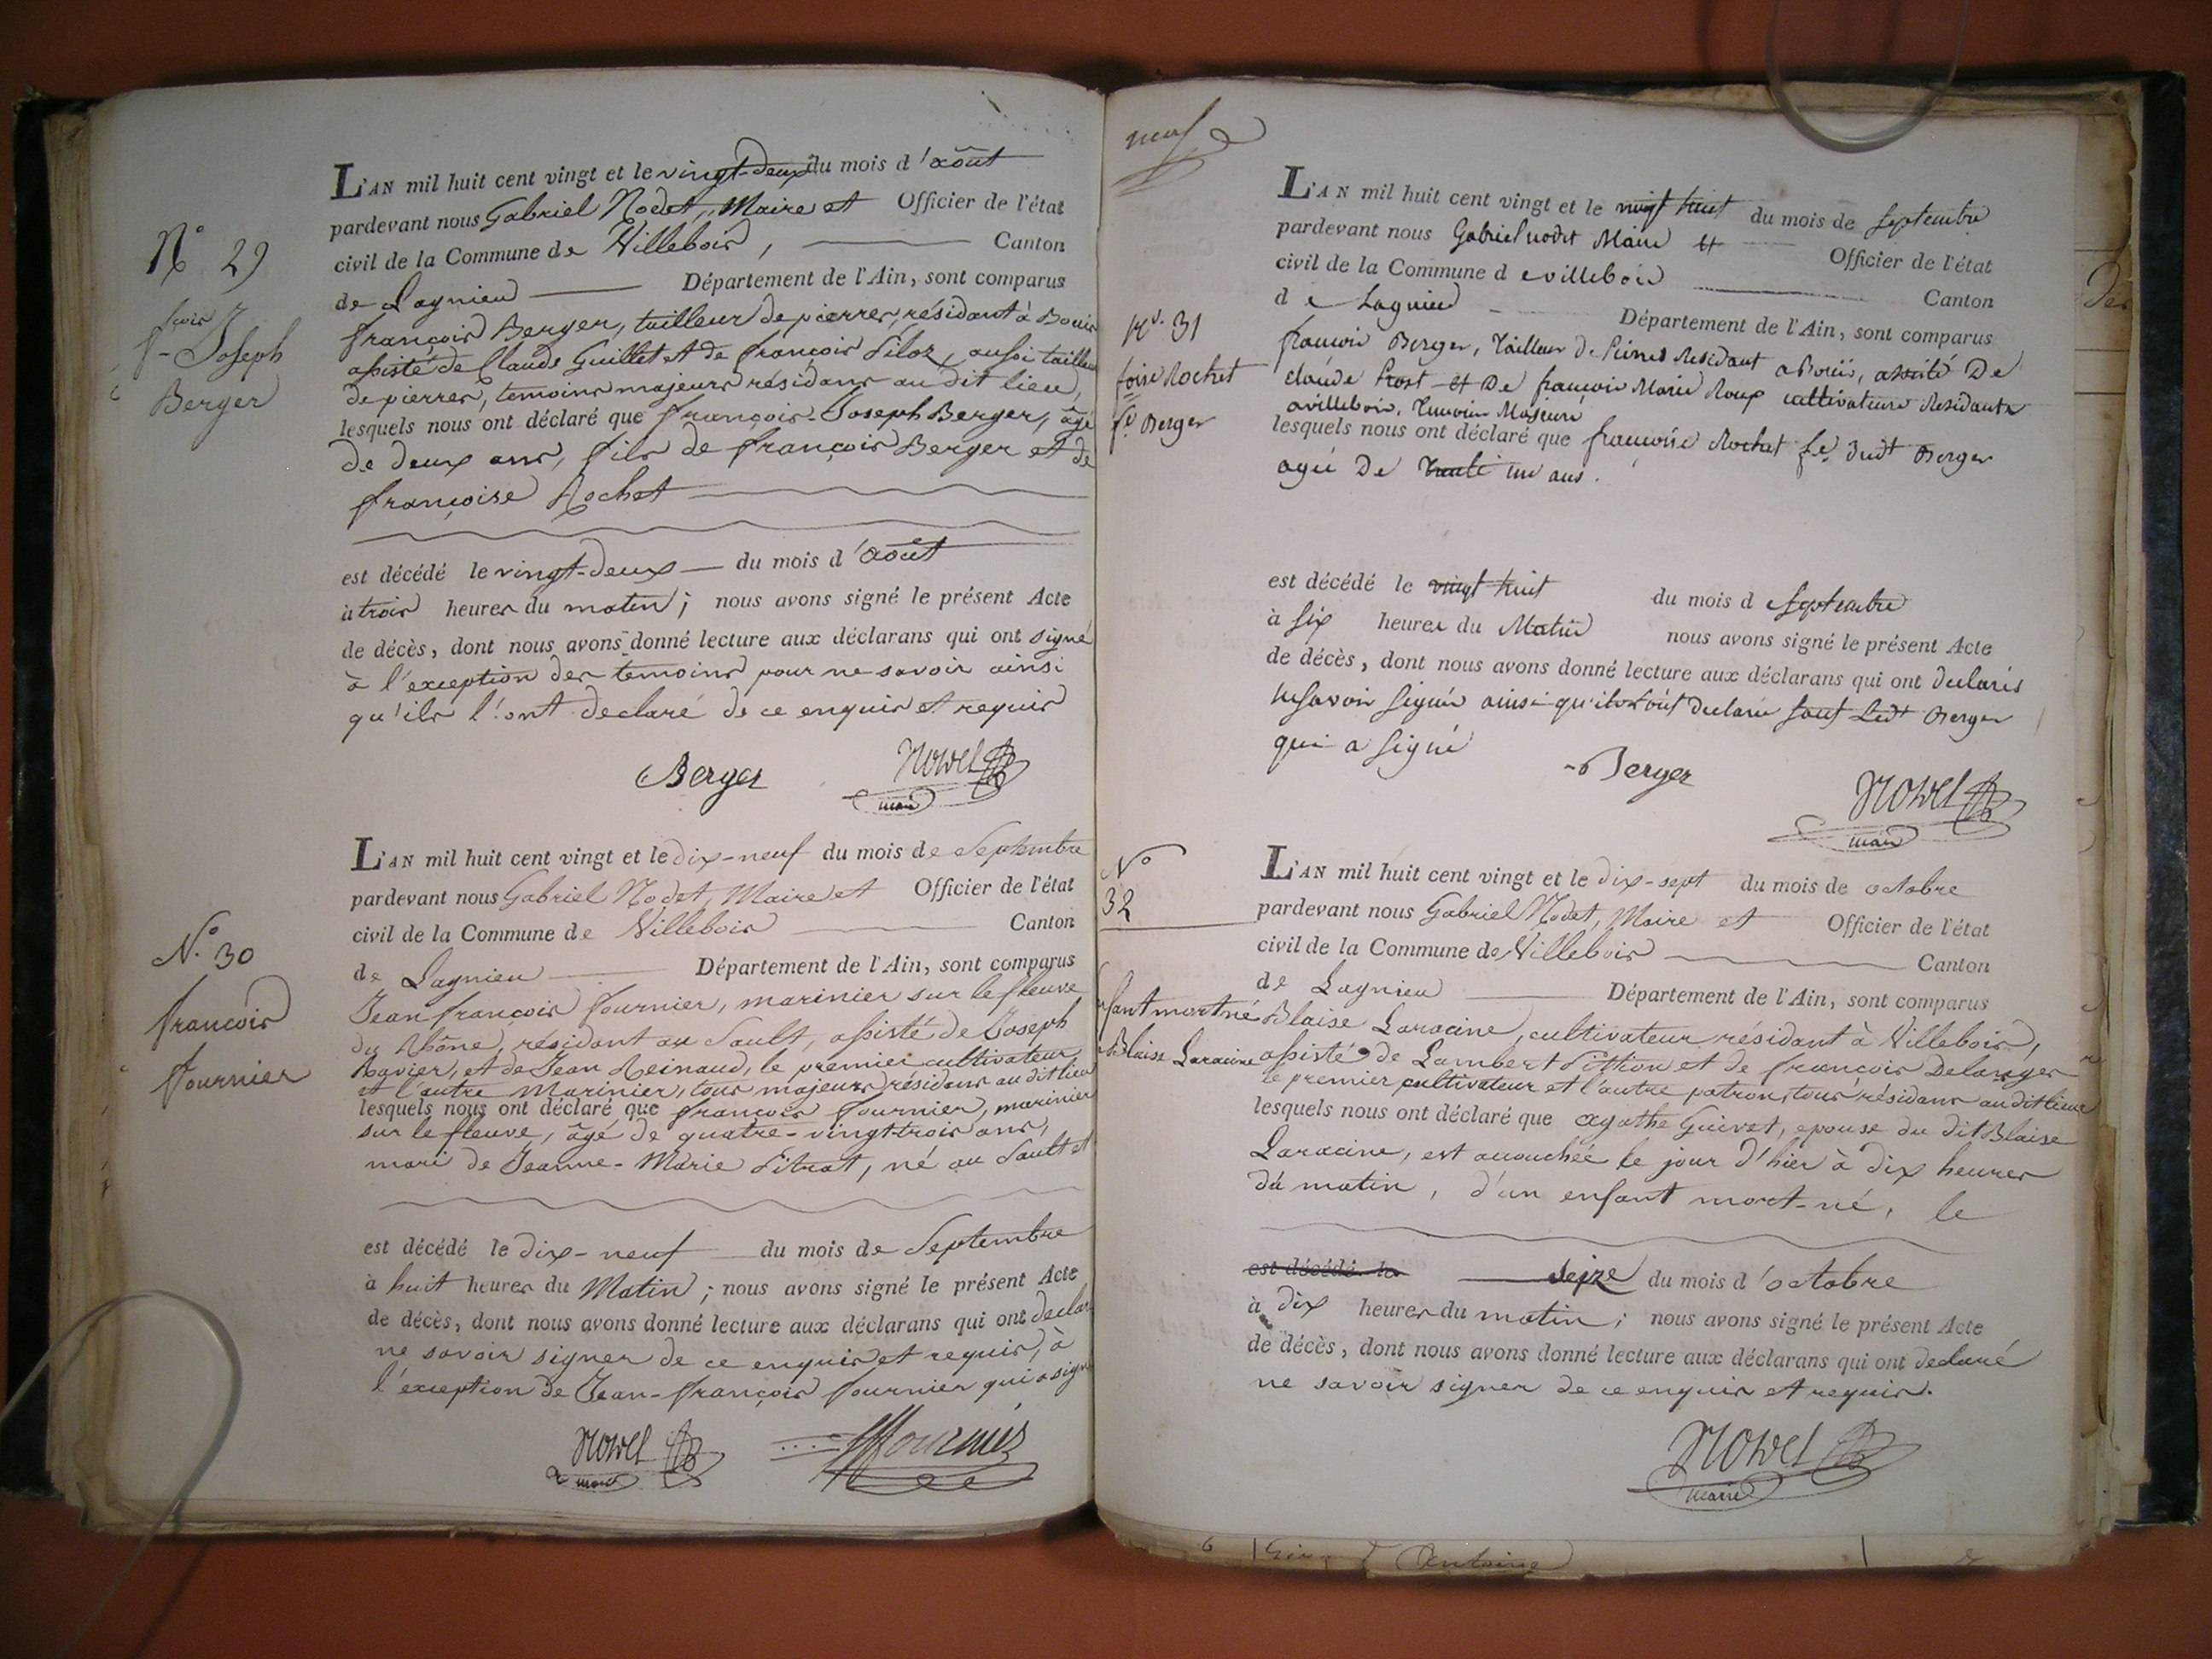 N° 29
fçois
f- Joseph
Berger
L'AN mil huit cent vingt et le vingt-deux du mois d'août
pardevant nous Gabriel Nodet, Maire et Officier de l'état
civil de la Commune de Villebois, Canton
de Lagnieu Département de l'Ain, sont comparus
françois Berger, tailleur de pierres, résidant à Bouis
assisté de Claude Guillet et de françois Piloz, aussi tailleurs
de pierres, temoins majeurs résidans au dit lieu,
lesquels nous ont déclaré que françois-Joseph Berger, âgé
de deux ans, fils de françois Berger et de
françoise Rochet
est décédé le vingt-deux du mois d'août
à trois heures du matin; nous avons signé le présent Acte
de décès, dont nous avons donné lecture aux déclarans qui ont signé
à l'exception des temoins pour ne savoir ainsi
qu'ils l'ont declaré de ce enquis et requis
Berger
Nodet
maire
N° 30
francois
fournier
L'AN mil huit cent vingt et le dix-neuf du mois de Septembre
pardevant nous Gabriel Nodet, Maire et Officier de l'état
civil de la Commune de Villebois Canton
de Lagnieu Département de l'Ain, sont comparus
Jean françois fournier, marinier sur le fleuve
du Rhône, résidant au Sault, assisté de Joseph
Ravier, et de Jean Reinaud, le premier cultivateur
et l'autre Marinier, tous majeurs résidans au dit lieu
lesquels nous ont déclaré que françois fournier, marinier
sur le fleuve, âgé de quatre-vingt-trois ans,
mari de Jeanne-Marie Pitrat, né au Sault et
est décédé le dix-neuf du mois de Septembre
à huit heures du Matin; nous avons signé le présent Acte
de décès, dont nous avons donné lecture aux déclarans qui ont declaré
ne savoir signer de ce enquis et requis, à
l'exception de Jean-françois fournier qui a signé
Nodet
maire
fournier
neuf
N°. 31
foise Rochet
fe Berger
L'AN mil huit cent vingt et le vingt huit du mois de Septembre
pardevant nous Gabriel nodet Maire et Officier de l'état
civil de la Commune de villebois Canton
de Lagnieu Département de l'Ain, sont comparus
francois Berger, Tailleur de Pierres Residant a Bouis, assisté De
claude Prost et De françois Marie Roux cultivateurs Residants
a villebois, Temoins Majeurs
lesquels nous ont déclaré que francoise Rochet fe dudt Berger
agée De Trente un ans.
est décédé le vingt huit du mois de Septembre
à Six heures du Matin nous avons signé le présent Acte
de décès, dont nous avons donné lecture aux déclarans qui ont declarés
ne savoir signer ainsi qu'ils ont declaré sauf Ledt Berger
qui a signé
Berger
Nodet
maire
N°
32
enfant mort né
Blaise Laracine
L'AN mil huit cent vingt et le dix-sept du mois de octobre
pardevant nous Gabriel Nodet, Maire et Officier de l'état
civil de la Commune de Villebois Canton
de Lagnieu Département de l'Ain, sont comparus
Blaise Laracine, cultivateur résidant à Villebois,
assisté de Lambert Pithion et de francois Delanger
le premier cultivateur et l'autre patron, tous résidans au dit lieu
lesquels nous ont déclaré que agathe Guivet, epouse du dit Blaise
Laracine, est accouchée le jour d'hier à dix heures
du matin, d'un enfant mort-né, le
est décédé le seize du mois d'octobre
à dix heures du matin; nous avons signé le présent Acte
de décès, dont nous avons donné lecture aux déclarans qui ont declaré
ne savoir signer de ce enquis et requis.
Nodet
maire
6 Antoine